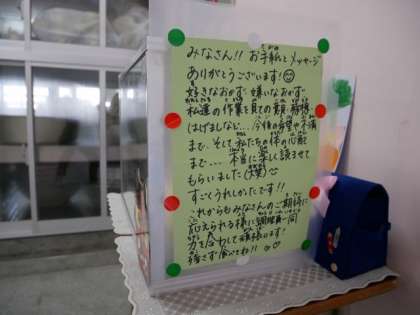 みなさん!! お手紙とメッセージ
ありがとうございます!
好きなおかず、嫌いなおかず、
私達の作業を見ての質問、
はげましなど...今後の希望や
まで、そして私たちの体の心配
まで... 本当に楽しく読ませて
もらいました(笑)
すごくうれしかったです!!
これからもみなさんのご期待に
応えられる様に調理員一同
力を合わして頑張ります!
残さず食べてね!! ♡